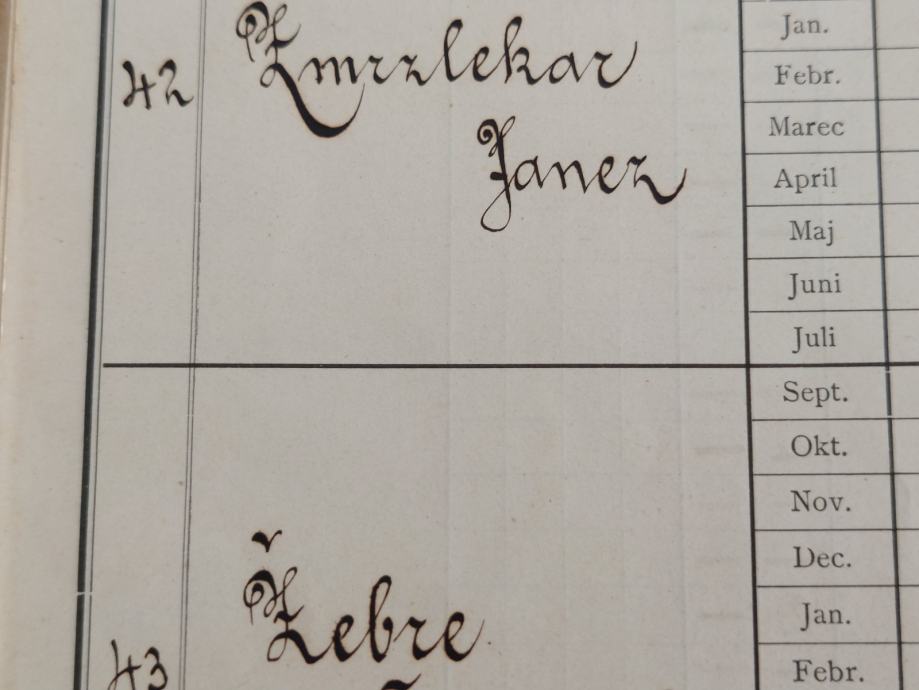 42
Zmrzlekar
Janez
Jan.
Febr.
Marec
April
Maj
Juni
Juli
Sept.
Okt.
Nov.
Dec.
Jan.
Febr.
43
Žebre